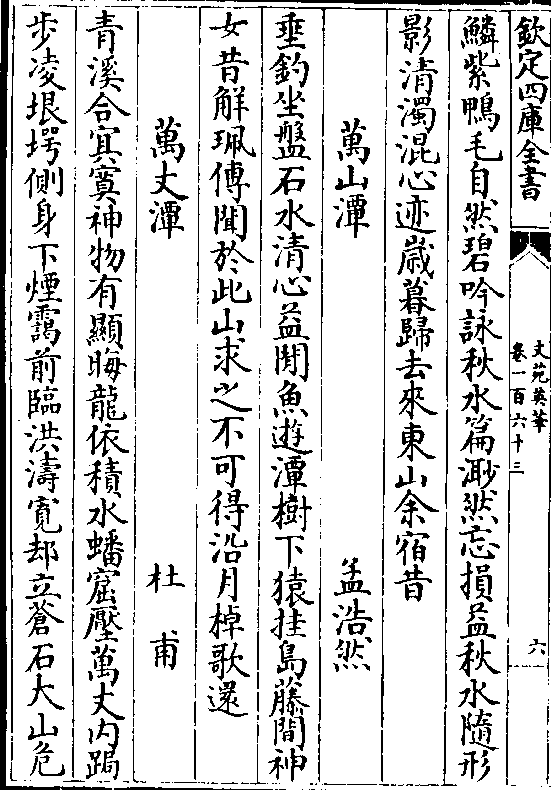 欽定四庫全書
文苑英華
卷一百六十三
六
鱗紫鴨毛自然碧吟詠秋水篇渺然忘損益秋水隨形
影清濁混心迹歲暮歸去來東山余宿昔
萬山潭
孟浩然
垂釣坐盤石水清心益閒魚遊潭樹下猿挂島藤間神
女昔解珮傳聞於此山求之不可得沿月棹歌還
萬丈潭
杜甫
青溪合冥寞神物有顯晦龍依積水蟠窟壓萬丈內跼
步凌垠堮側身下煙靄前臨洪濤寬却立蒼石大山危